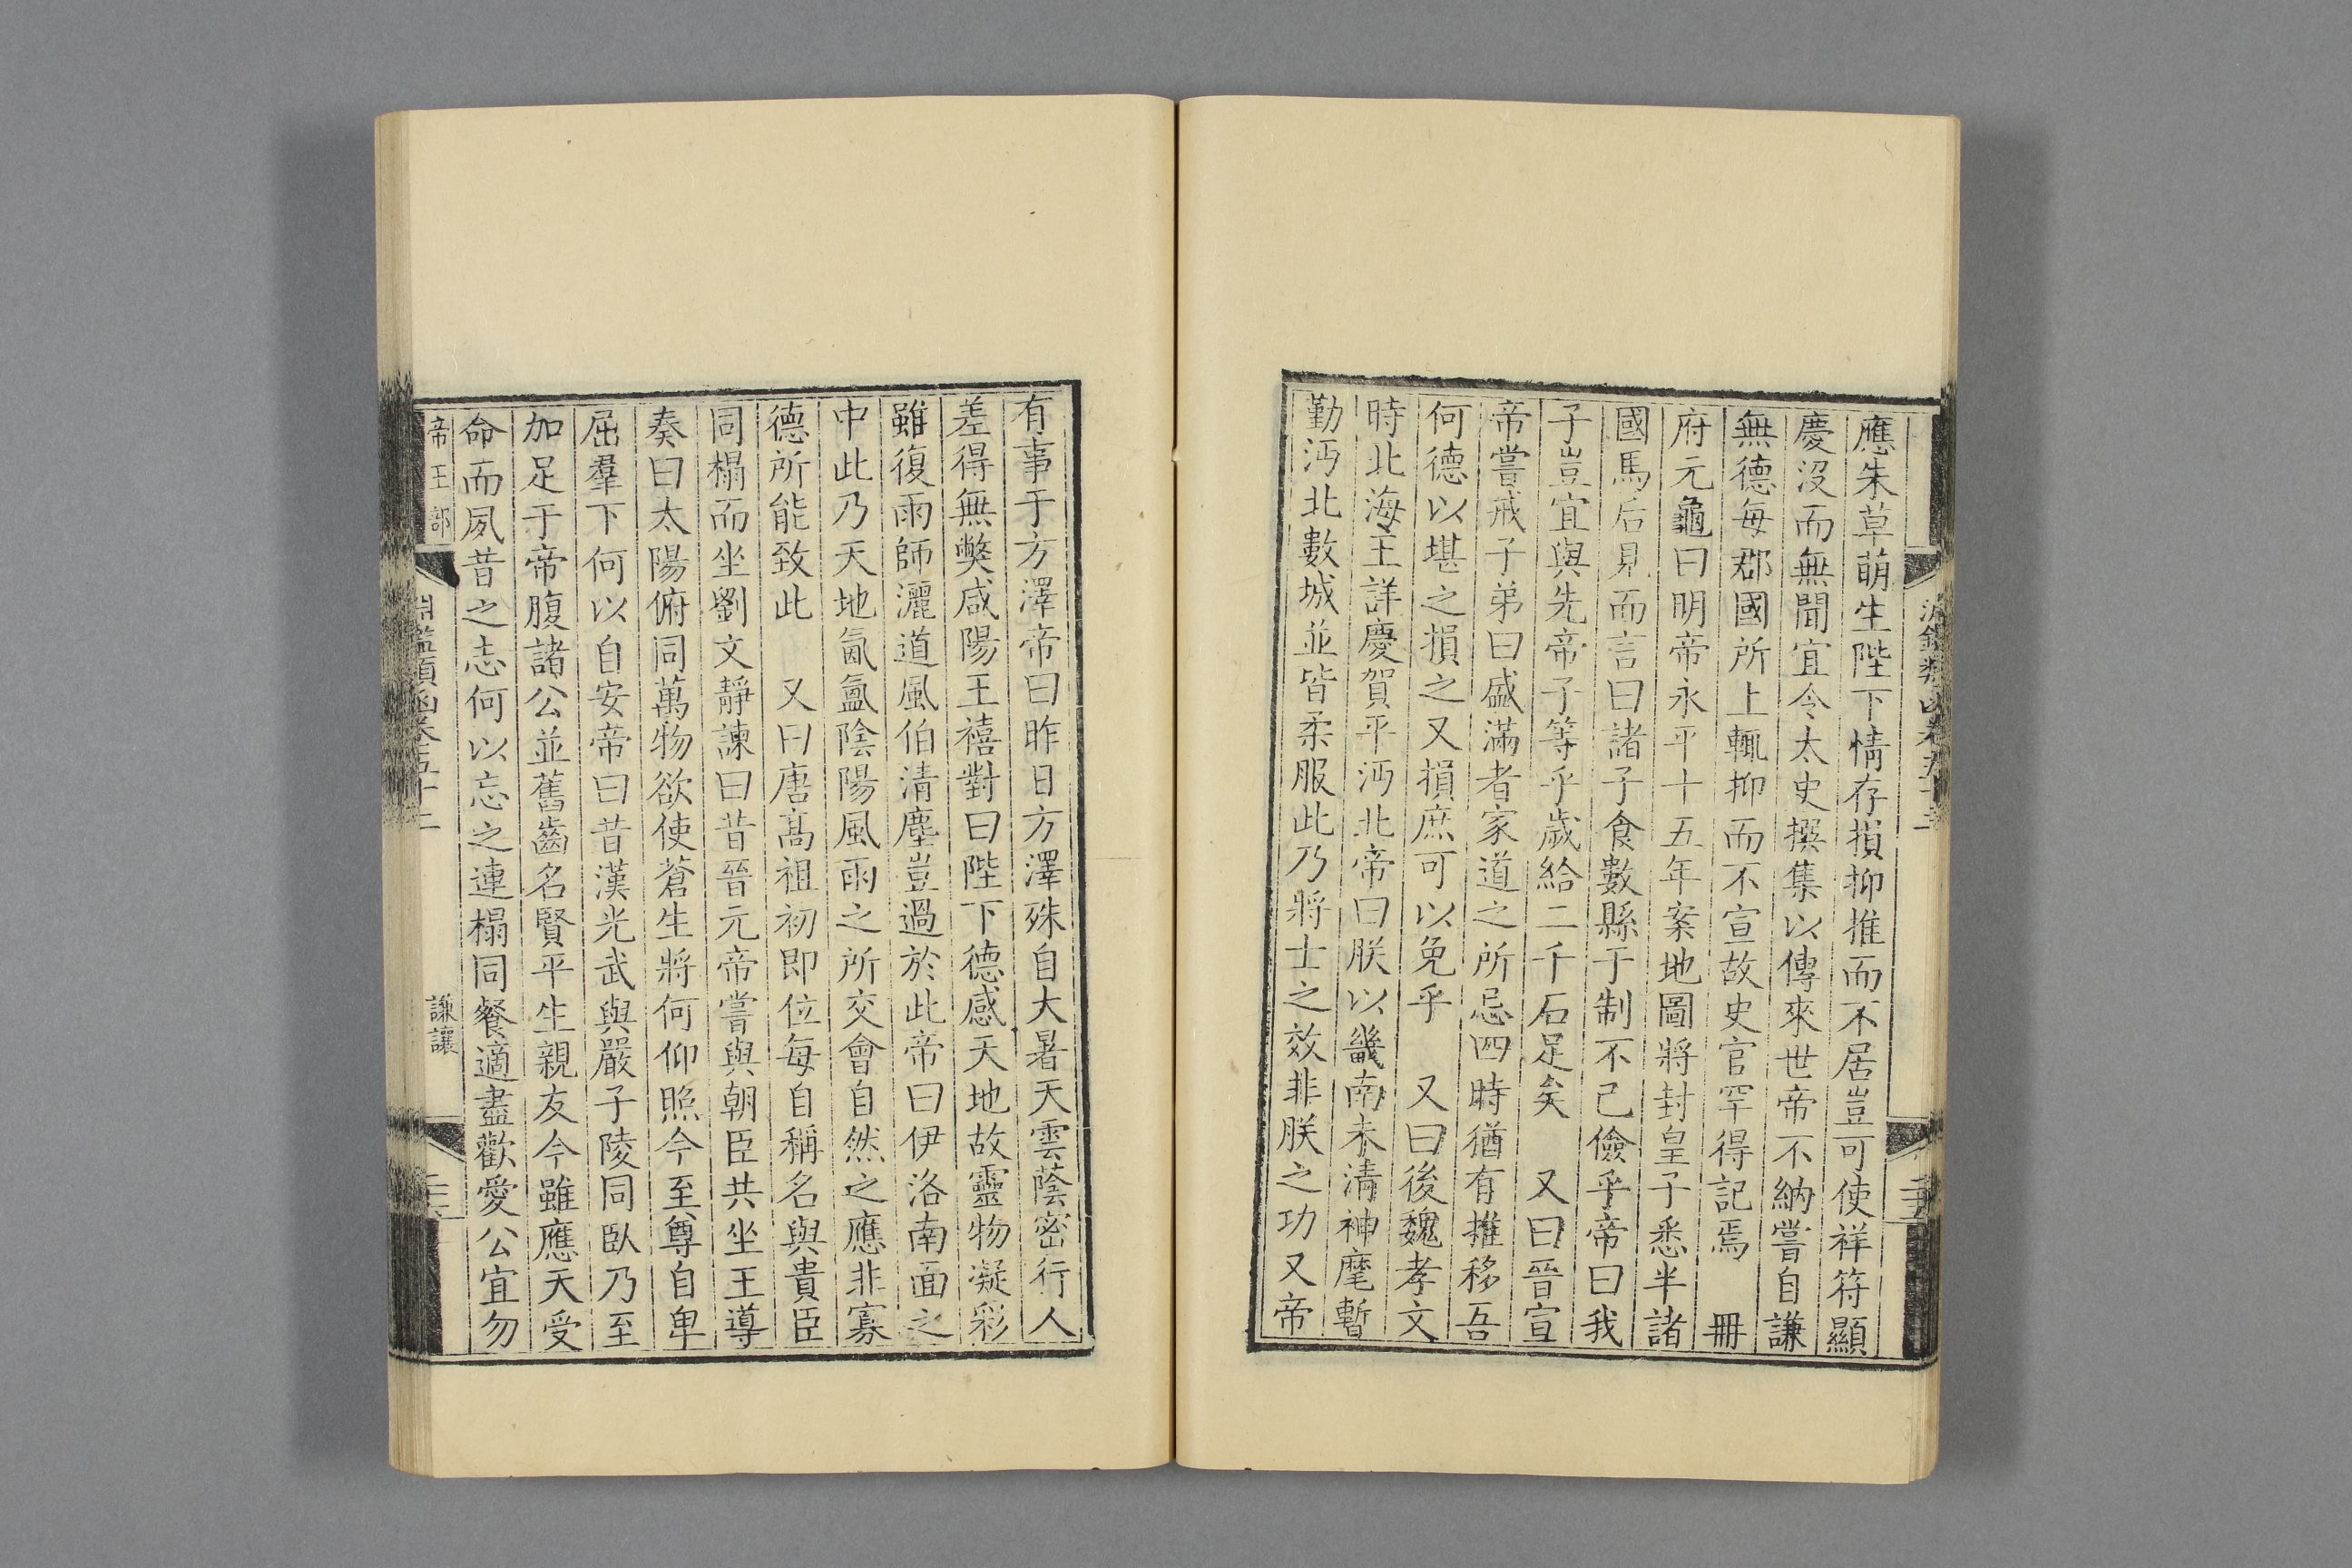 應朱草萌生陛下情存損抑推而不居豈可使祥符顯
慶沒而無聞宜令太史撰集以傳來世帝不納嘗自謙
無德每郡國所上輒抑而不宣故史官罕得記焉　冊
府元龜曰明帝永平十五年案地圖將封皇子悉半諸
國馬后見而言曰諸子食數縣于制不已儉乎帝曰我
子豈宜與先帝子等乎歲給二千石足矣　又曰晉宣
帝嘗戒子弟曰盛滿者家道之所忌四時猶有推移吾
何德以堪之損之又損庶可以免乎　又曰後魏孝文
時北海王詳慶賀平沔北帝曰朕以畿南未清神麾暫
勤沔北數城並皆柔服此乃將士之效非朕之功又帝
有事于方澤帝曰昨日方澤殊自大暑天雲蔭密行人
差得無弊咸陽王禧對曰陛下德感天地故靈物凝彩
雖復雨師灑道風伯清塵豈過於此帝曰伊洛南面之
中此乃天地氤氳陰陽風雨之所交會自然之應非寡
德所能致此　又曰唐髙祖初即位每自稱名與貴臣
同榻而坐劉文靜諫曰昔晉元帝嘗與朝臣共坐王導
奏曰太陽俯同萬物欲使蒼生將何仰照今至尊自卑
屈羣下何以自安帝曰昔漢光武與嚴子陵同臥乃至
加足于帝腹諸公並舊齒名賢平生親友今雖應天受
命而夙昔之志何以忘之連榻同餐適盡歡愛公宜勿
帝王部
淵鑑類函卷五十二
謙讓